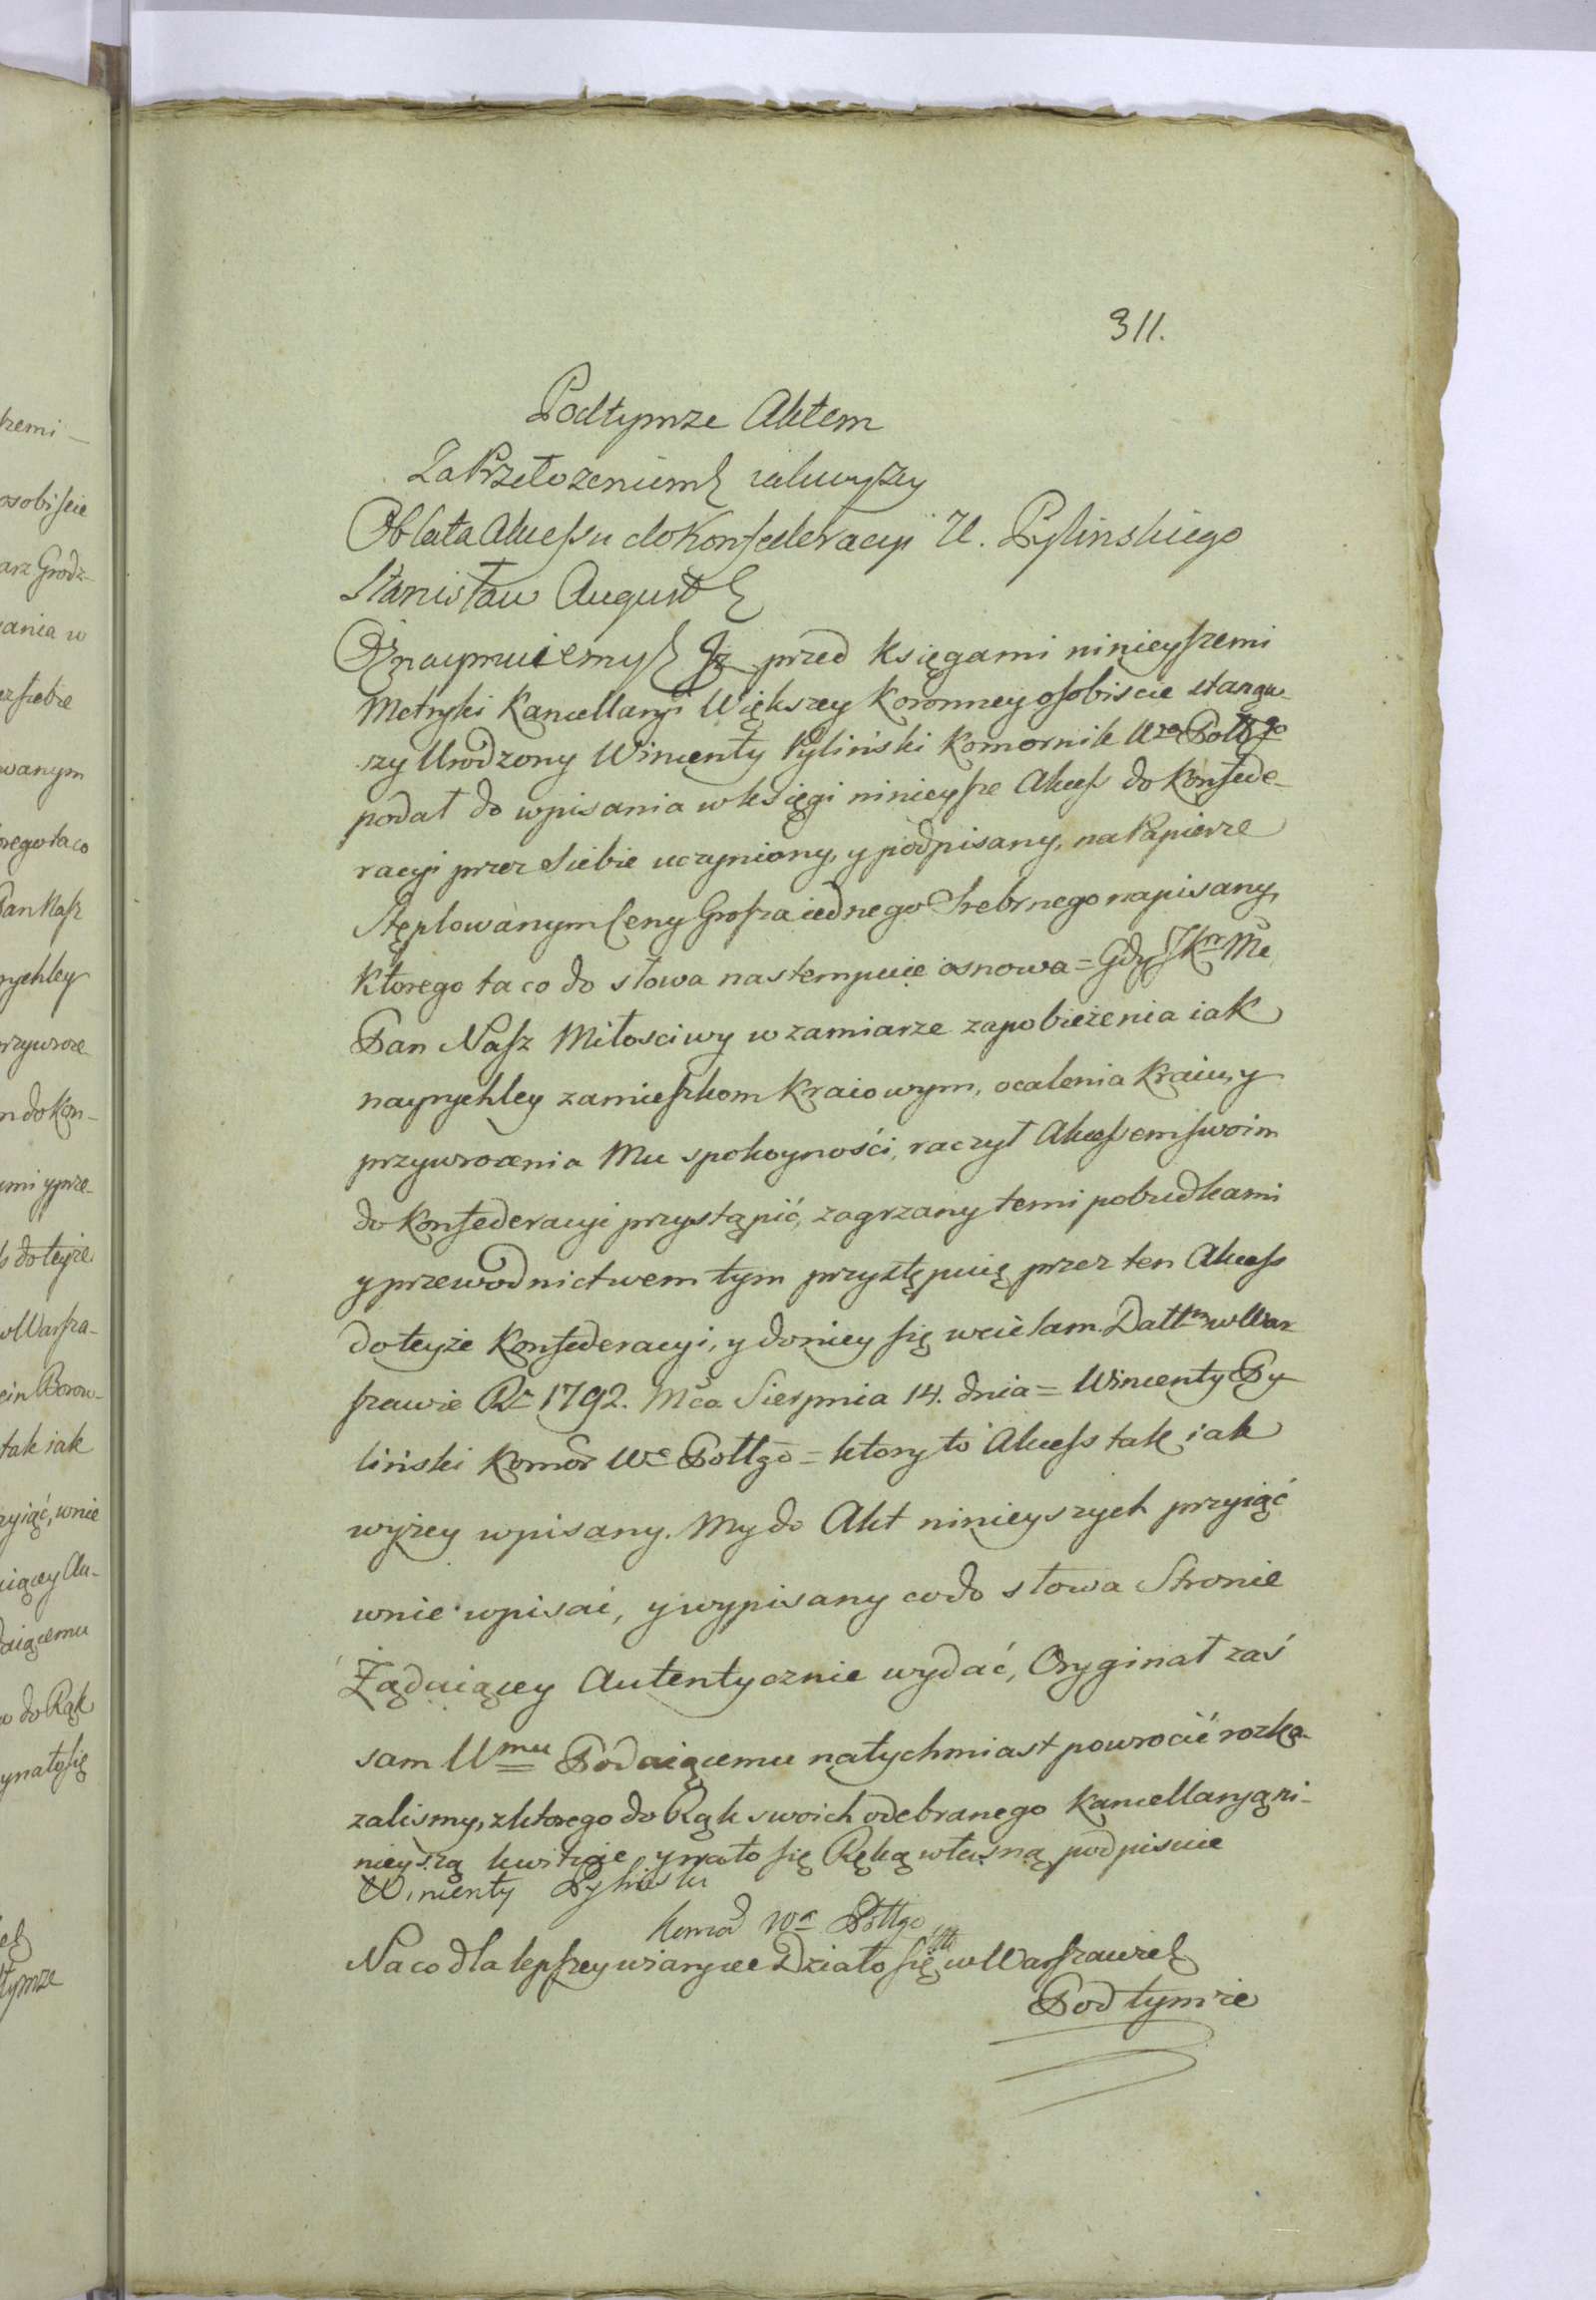 311.
Podtymze Aktem
Za Przełozeniem iakwyzey
Oblata Akcessu do Konfederacyi U. Pylinskiego
Stanisław August
Oznaymuiemy Iz przed Księgami ninieyszemi
Metryki Kancellaryi Większey Koronney osobiscie stanąw-
szy Urodzony Wincenty Pyliński Komornik
podał do wpisania w księgi ninieysze Akcess do Konfede-
racyi przez Siebie uczyniony, y podpisany, na Papierze
Stęplowanym Ceny Grosza iednego Srebrnego napisany,
Ktorego ta co do słowa nastempuie osnowa = Gdy JKr Mc
Pan Nasz Miłosciwy w zamiarze zapobieżenia iak
nayrychley zamieszkom Kraiowym, ocalenia Kraiu, y
przywrocenia Mu spokoyności, raczył Akcessem swoim
do Konfederacyi przystąpić, zagrzany temi pobudkami
y przewodnictwem tym przystępuię przez ten Akcess
do teyże Konfederacyi, y do niey się wcielam Dattm w War
szawie Ru 1792. Mca Sierpnia 14. dnia = Wincenty Py
liński Komor Wa Potłgo = ktory to Akcess tak iak
wyżey wpisany. My do Akt ninieyszych przyiąć
wnie wpisać, y wypisany co do słowa Stronie
Żądaiącey Autentycznie wydać, Oryginał zaś
sam Umu Podaiącemu natychmiast powrocić rozka-
zalismy, z ktorego do Rąk swoich odebranego Kancellaryą ni-
nieyszą kwituie y na to się Ręką własną podpisuie
Wincenty Pyliński
Komor Wa Potłgo
Na co dla lepszey wiary ec Działo się w Warszawie
Pod tymże